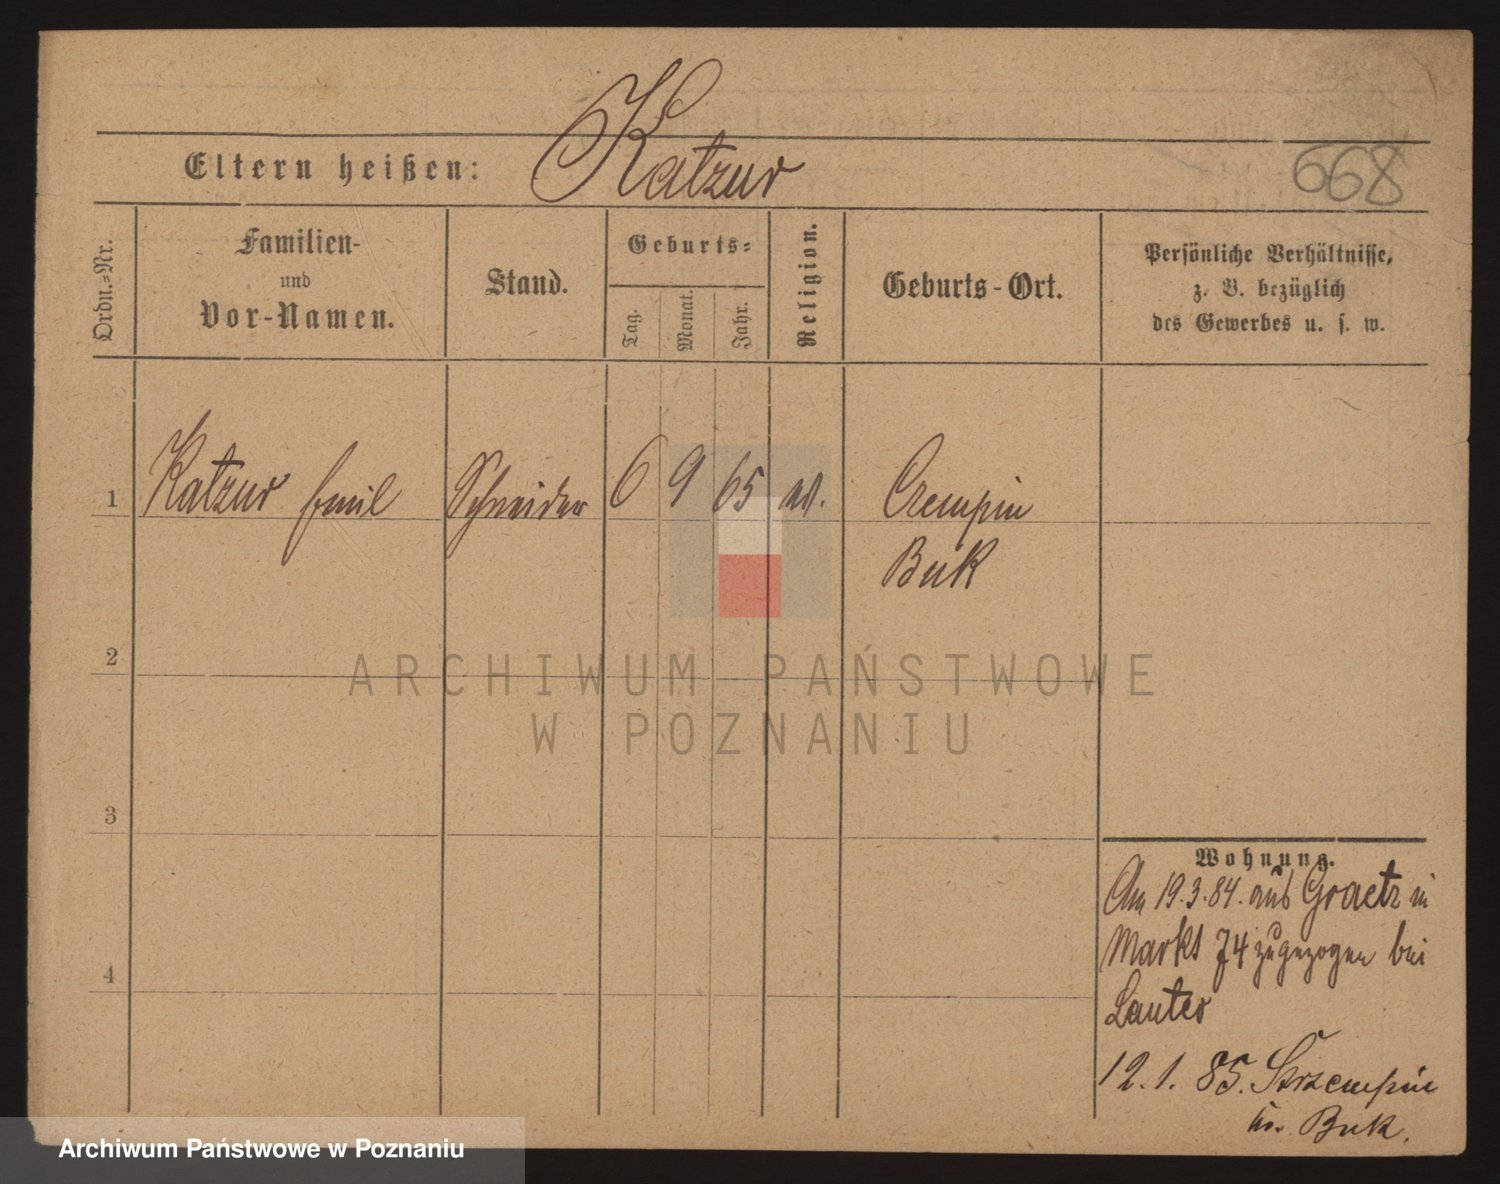 Eltern heißen: Katzur
668
Ordn.-Nr.
Familien-
und
Vor-Namen.
Stand.
Geburts-
Tag.
Monat.
Jahr.
Religion.
Geburts-Ort.
Persönliche Verhältnisse,
z. B. bezüglich
des Gewerbes u. s. w.
1 Katzur Emil Schneider 6 9 65
Buk
2
ARCHIWUM PAŃSTWOWE
W POZNANIU
3
4
Wohnung.
Am 19.3.84. aus Graetz in
Markt 74 zugezogen bei
Lauter
12. 1. 85. Strzempin
Kr. Buk.
Archiwum Państwowe w Poznaniu